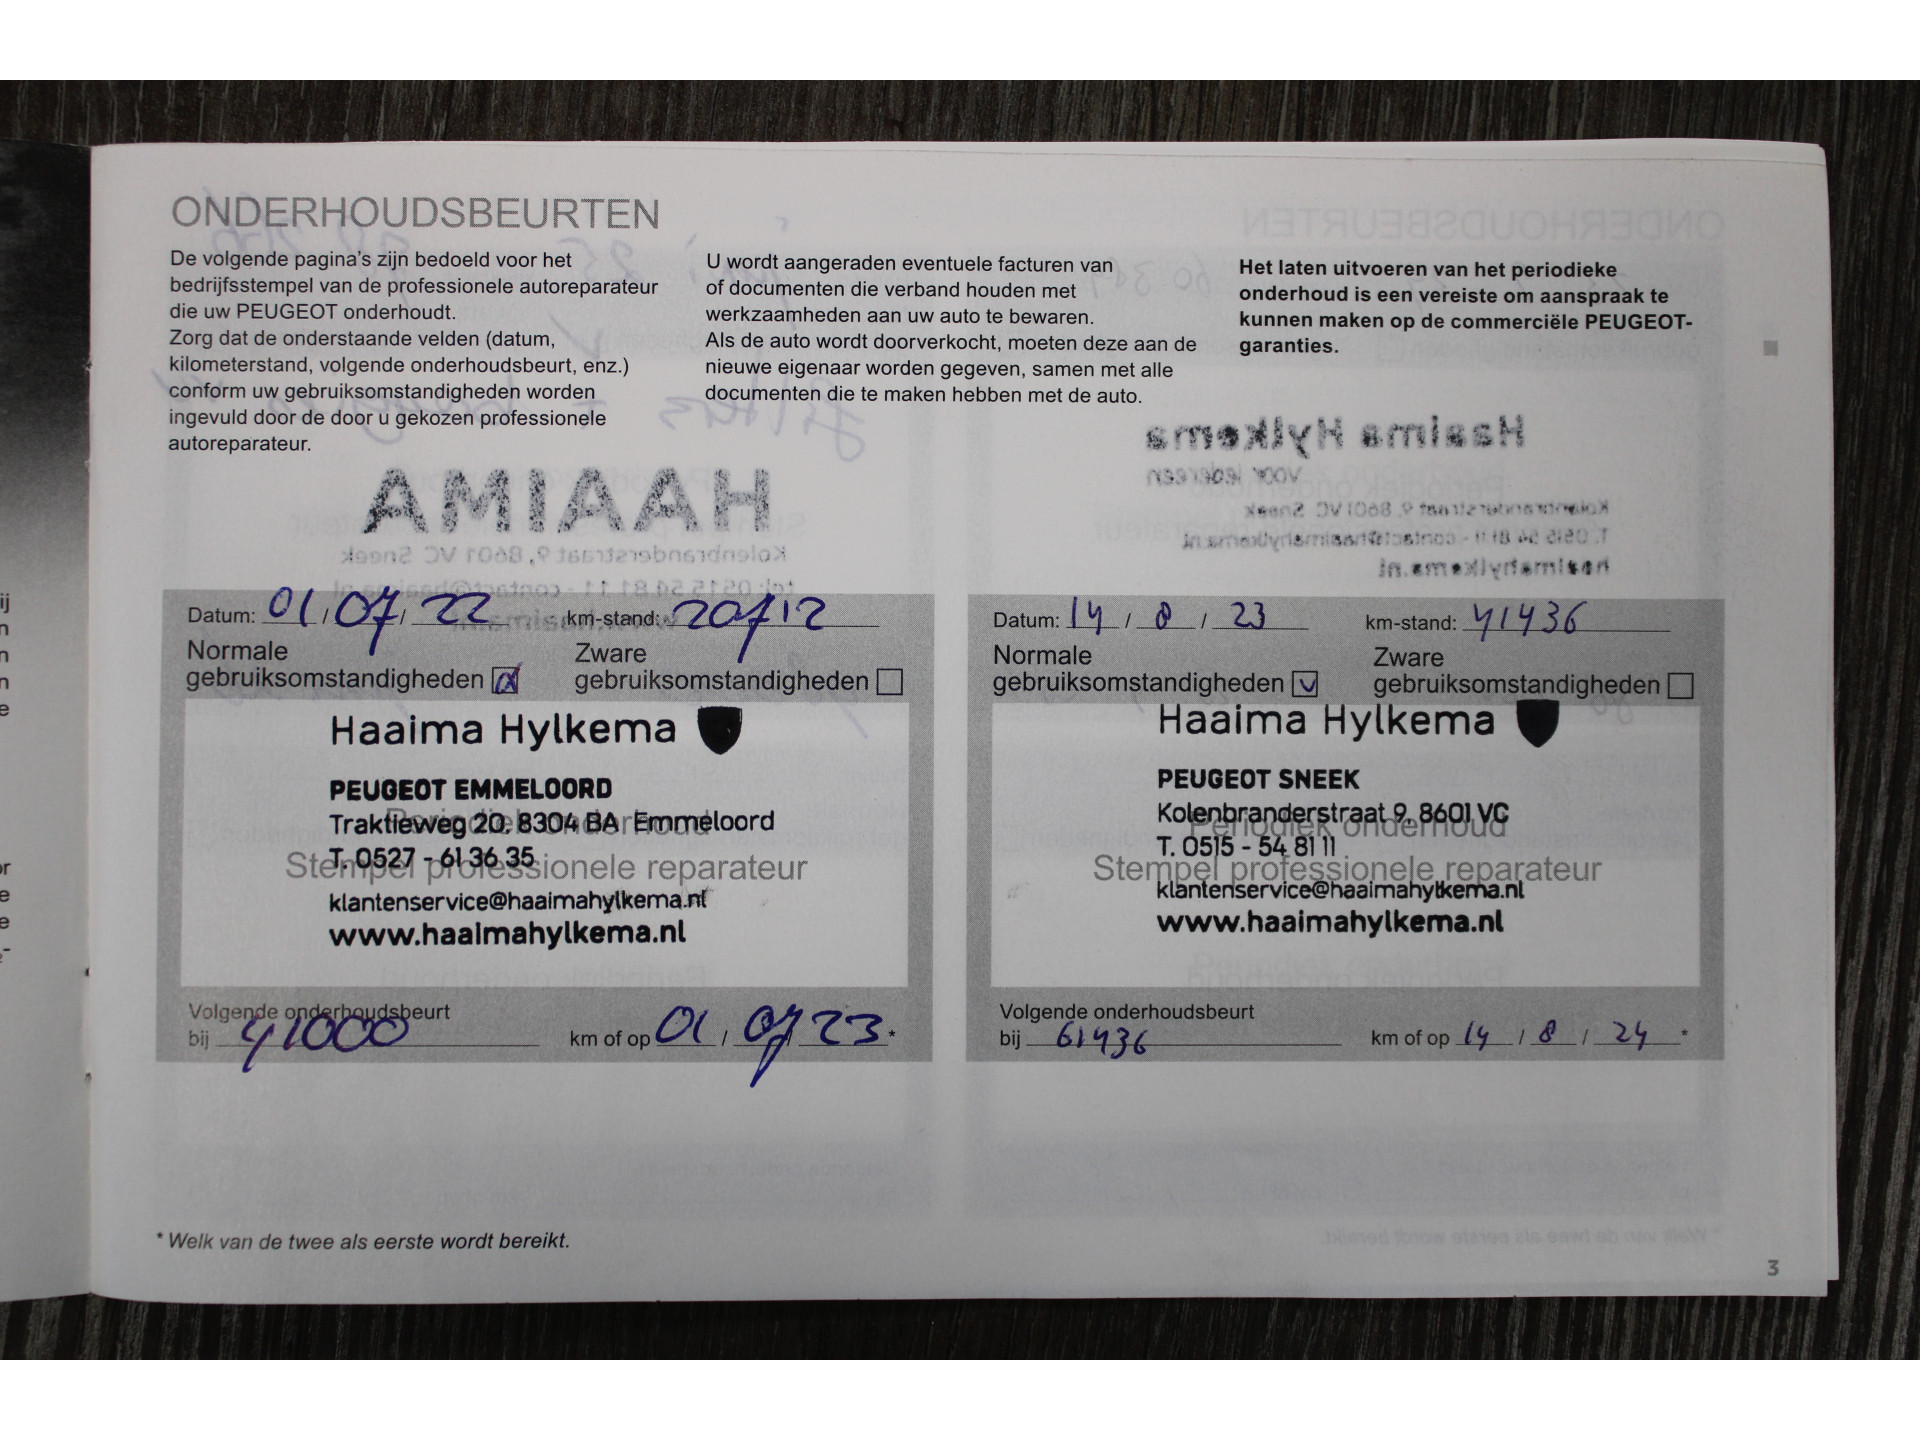 ONDERHOUDSBEURTEN
De volgende pagina's zijn bedoeld voor het
bedrijfsstempel van de professionele autoreparateur
die uw PEUGEOT onderhoudt.
Zorg dat de onderstaande velden (datum,
kilometerstand, volgende onderhoudsbeurt, enz.)
conform uw gebruiksomstandigheden worden
ingevuld door de door u gekozen professionele
autoreparateur.
U wordt aangeraden eventuele facturen van
of documenten die verband houden met
werkzaamheden aan uw auto te bewaren.
Als de auto wordt doorverkocht, moeten deze aan de
nieuwe eigenaar worden gegeven, samen met alle
documenten die te maken hebben met de auto.
Het laten uitvoeren van het periodieke
onderhoud is een vereiste om aanspraak te
kunnen maken op de commerciële PEUGEOT-
garanties.
Datum: 01/07/22 km-stand: 20712
Normale
gebruiksomstandigheden
Zware
gebruiksomstandigheden
Haaima Hylkema
PEUGEOT EMMELOORD
Periodiek onderhoud
Traktieweg 20, 8304 BA Emmeloord
T. 0527 - 61 36 35
Stempel professionele reparateur
klantenservice@haaimahylkema.nl
www.haaimahylkema.nl
Volgende onderhoudsbeurt
bij 41000 km of op 01/07/23*
Datum: 14/8/23 km-stand: 41436
Normale
gebruiksomstandigheden
Zware
gebruiksomstandigheden
Haaima Hylkema
PEUGEOT SNEEK
Kolenbranderstraat 9, 8601 VC
Periodiek onderhoud
T. 0515 - 54 81 11
Stempel professionele reparateur
klantenservice@haaimahylkema.nl
www.haaimahylkema.nl
Volgende onderhoudsbeurt
bij 61436 km of op 14/8/24*
* Welk van de twee als eerste wordt bereikt.
3